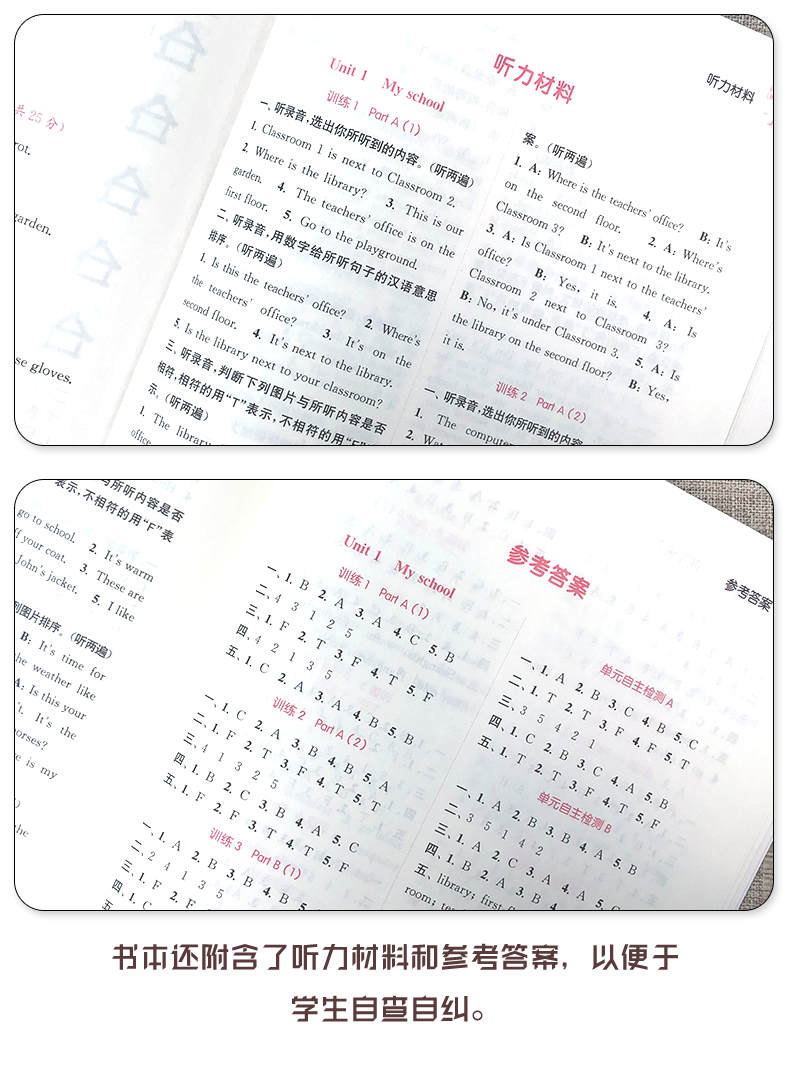 共25分）
rot.
garden.
se gloves.
听力材料
听力材料
Unit 1 My school
训练1 Part A（1）
一、听录音，选出你所听到的内容。（听两遍）
1. Classroom 1 is next to Classroom 2.
2. Where is the library? 3. This is our
garden. 4. The teachers' office is on the
first floor. 5. Go to the playground.
二、听录音，用数字给所听句子的汉语意思
排序。（听两遍）
1. Is this the teachers' office? 2. Where's
the teachers' office? 3. It's on the
second floor. 4. It's next to the library.
5. Is the library next to your classroom?
三、听录音，判断下列图片与所听内容是否
相符，相符的用“T”表示，不相符的用“F”
示。（听两遍）
1. The library
office
案。（听两遍）
1. A: Where is the teachers' office? B: It's
on the second floor. 2. A: Where's
Classroom 3? B: It's next to the library.
3. A: Is Classroom 1 next to the teachers'
office? B: Yes, it is. 4. A: Is
Classroom 2 next to Classroom 3?
B: No, it's under Classroom 3. 5. A: Is
the library on the second floor? B: Yes,
it is.
训练2 Part A（2）
一、听录音，选出你所听到的内容
1. The computer
2. Wat
与所听内容是否
表示，不相符的用“F”表
go to school. 2. It's warm
ff your coat. 3. These are
John's jacket. 5. I like
列图片排序。（听两遍）
B: It's time for
he weather like
A: Is this your
't. It's the
horses?
re is my
)
the
参考答案
参考答案
Unit 1 My school
训练1 Part A（1）
一、1. B 2. A 3. A 4. C 5. B
二、4 3 1 2 5
三、1. F 2. T 3. F 4. T 5. F
四、4 2 1 3 5
五、1. C 2. A 3. A 4. B 5. B
训练2 Part A（2）
一、1. C 2. A 3. B 4. B 5. A
二、1. F 2. T 3. F 4. T 5. T
三、4 1 3 2 5
四、1. B 2. C 3. B 4. A 5. C
五、1. F 2. F 3. T 4. T 5. F
训练3 Part B（1）
一、1. A 2. B 3. B 4. B 5.
二、2 4 1 3 5
三、1. F 2. F
四、1. C
五、
单元自主检测A
一、1. A 2. B 3. C 4. B 5. C
二、1. T 2. T 3. F 4. F 5. T
三、3 5 4 2 1
四、1. C 2. B 3. C 4. A 5. B
五、1. T 2. T 3. F 4. T 5. F
单元自主检测B
一、1. A 2. B 3. B 4. A 5. B
二、3 5 1 4 2
三、1. A 2. C 3. A 4. A 5. C
四、1. B 2. A 3. B 4.
五、library; first f
room; te
书本还附含了听力材料和参考答案，以便于
学生自查自纠。